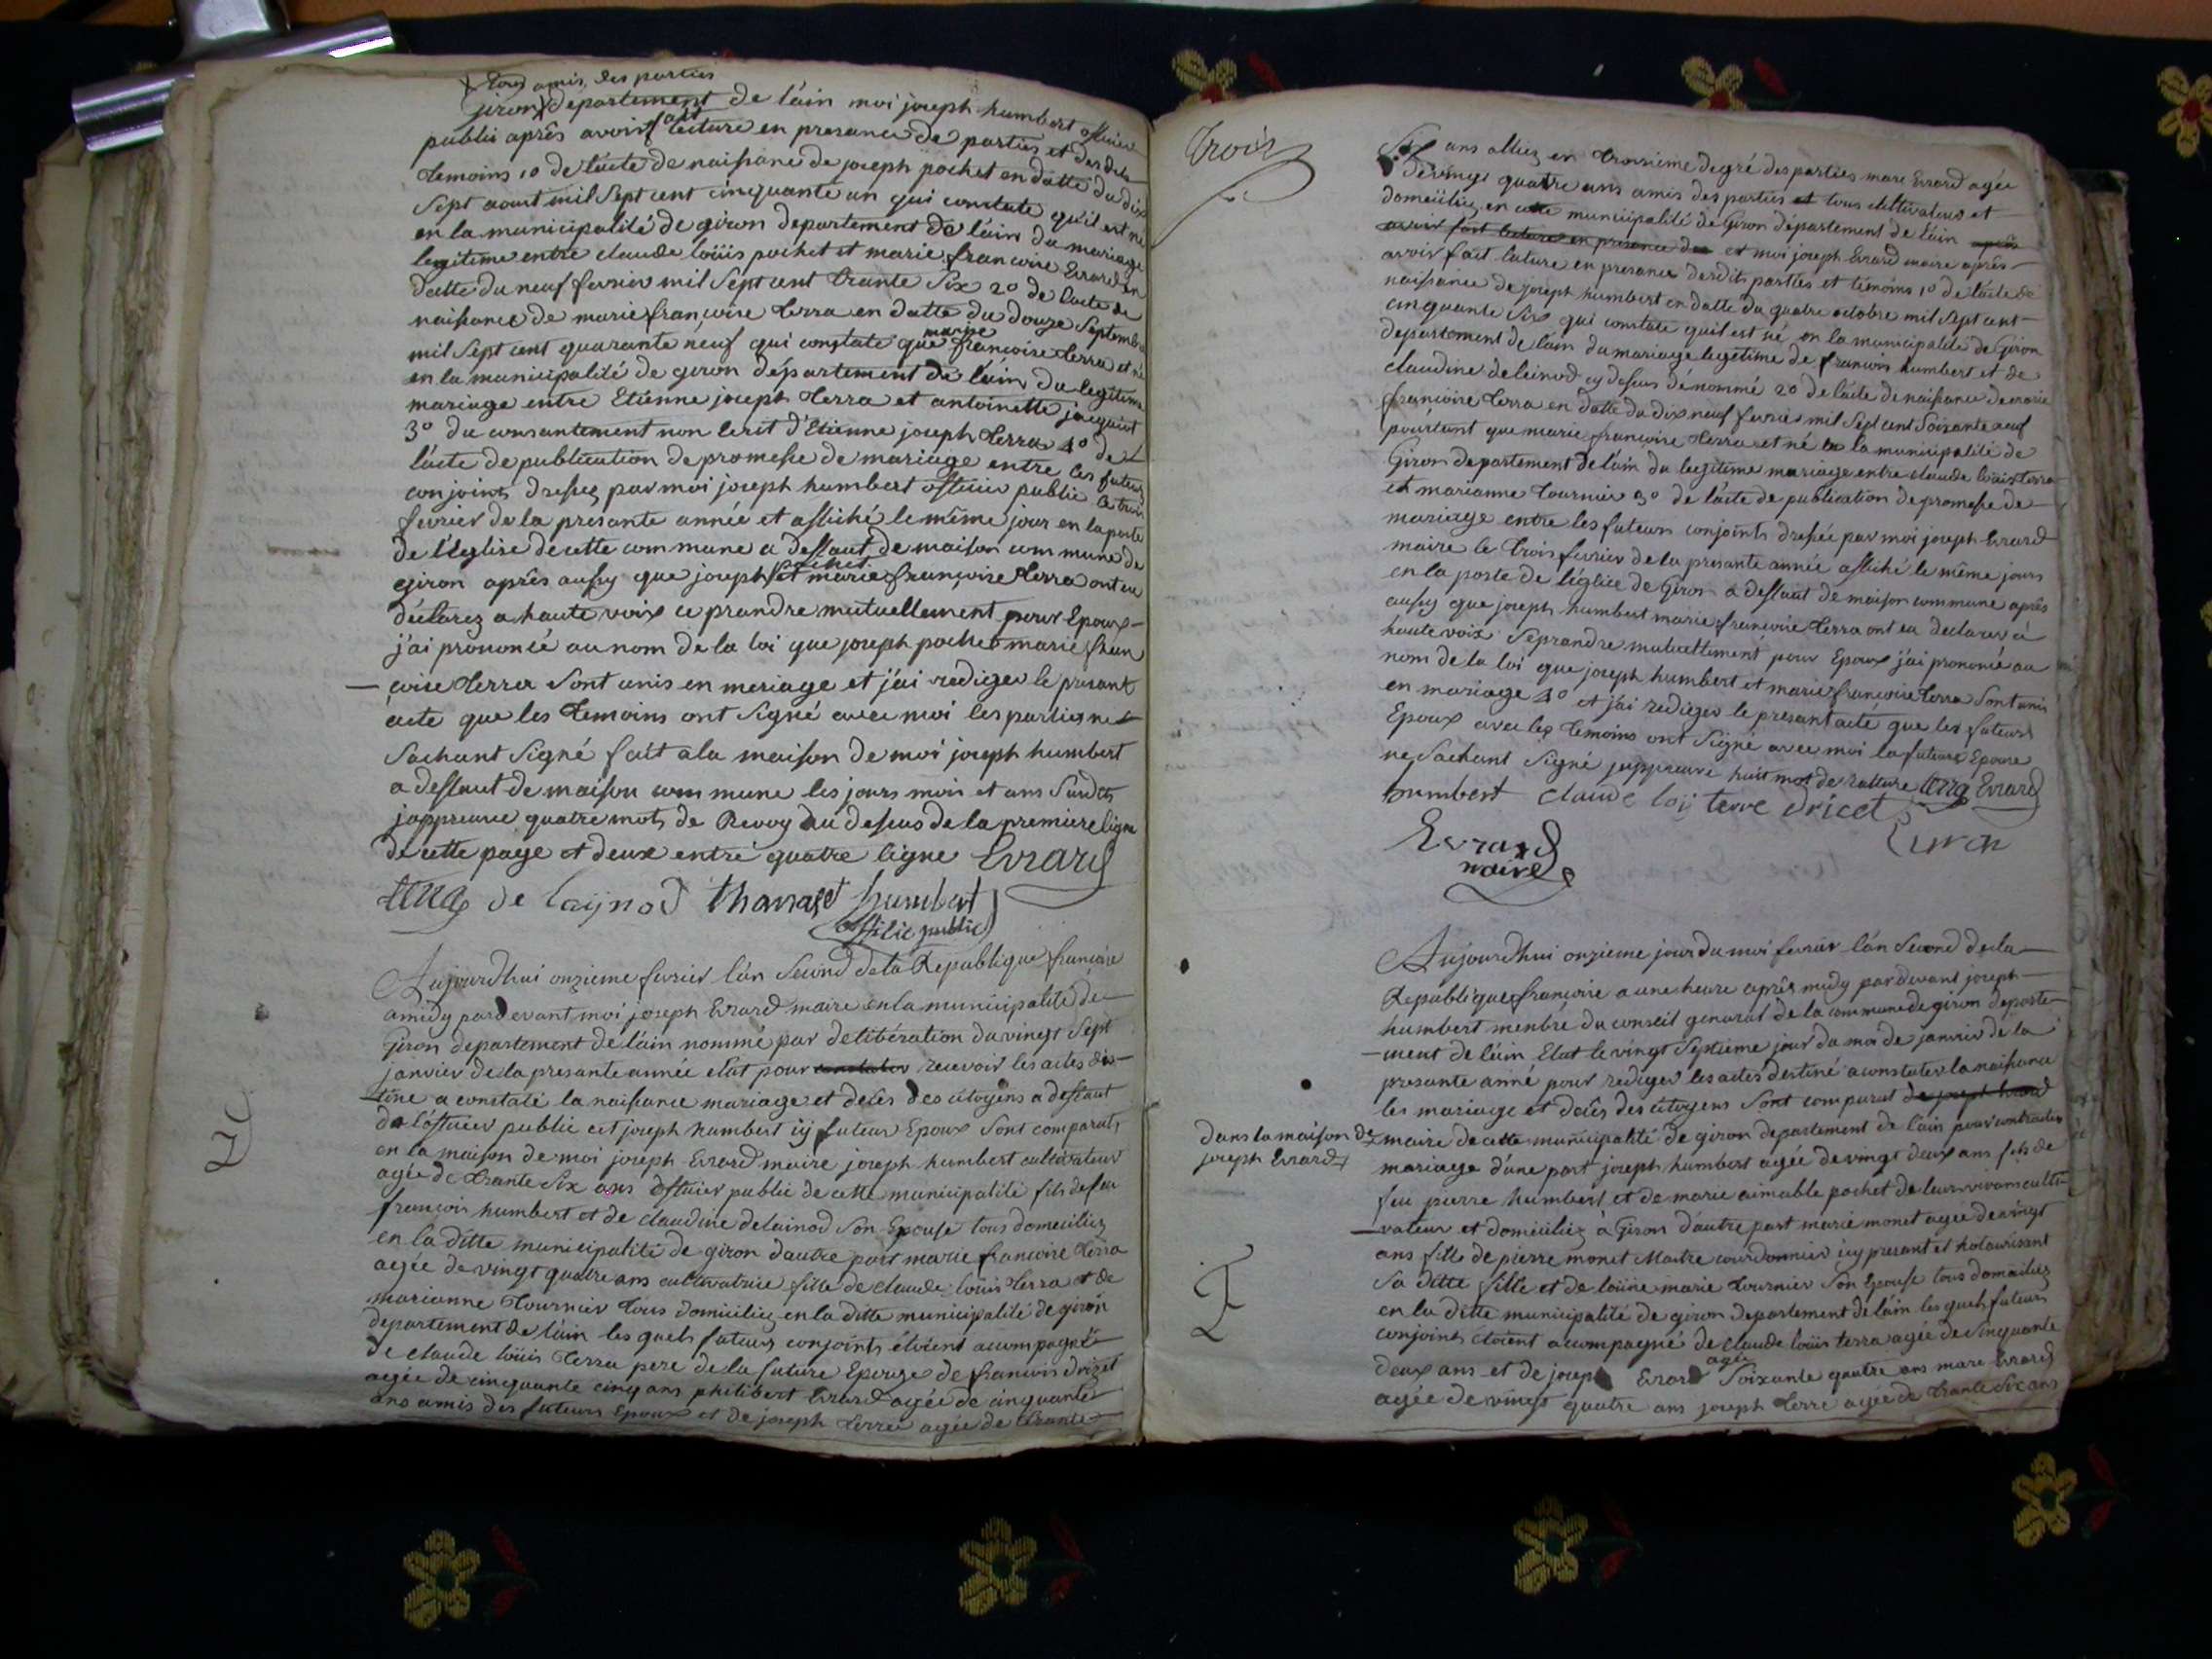 tous amis des parties
giron departement de l'ain moi joseph humbert officier
public après avoir fait lecture en presance de parties et des dits
temoins 1o de l'acte de naissance de joseph pochet en datte du dix
sept aout mil sept cent cinquante un qui constate qu'il est né
en la municipalité de giron departement de l'ain du mariage
legitime entre claude loüis pochet et marie francoise Evrard en
datte du neuf fevrier mil sept cent trante six 2o de l'acte de
naissance de marie françoise terra en datte du douze septembre
mil sept cent quarante neuf qui constate que marie françoise terra et né
en la municipalité de giron département de l'ain du legitime
mariage entre Etienne joseph terra et antoinette jacquict
3o du consantement non écrit d'Etienne joseph terra 4o de
l'acte de publication de promesse de mariage entre les futeur
conjoins dressez par moi joseph humbert officier public le trois
fevrier de la presante année et affiché le même jour en la porte
de l'Eglise de cette commune a deffaut de maison commune de
giron après aussy que joseph pochet et marie françoise terra ont eu
déclarez a haute voix ce prandre mutuellement pour Epoux
j'ai prononcé au nom de la loi que joseph pochet marie fran
coise terra sont unis en mariage et j'ai rediger le presant
acte que les temoins ont signé avec moi les parties ne
sachant signé fait a la maison de moi joseph humbert
a deffaut de maison commune les jours mois et ans susdits
japprouve quatre mots de Renvoy au dessus de la premiere ligne
de cette page et deux entre quatre ligne Evrard
terra de laijnod humbert
officie public
Aujourdhui onzieme fevrier l'an second de la Republique francoise
a midy pardevant moi joseph Evrard maire en la municipalité de
Giron departement de l'ain nommé par deliberation du vingt sept
janvier de la presante année elut pour constater recevoir les actes des
tine a constaté la naissance mariage et decès des citoyens a deffaut
de l'officier public cet joseph humbert icy futeur Epoux sont comparuts
en la maison de moi joseph Evrard maire joseph humbert cultivateur
agée de trante six ans officier public de cette municipalité fils de feu
francois humbert et de claudine delainod son Epouse tous domeciliez
en la ditte municipalité de giron dautre part marie francoise terra
agée de vingt quatre ans cultivatrice fille de claude louis terra et de
marianne tournier tous domiciliez en la ditte municipalité de giron
departement de l'ain les quels futeurs conjoints étoient acompagné
de claude loüis terra pere de la future Epouze de francois drizet
agée de cinquante cinq ans philibert Evrard agée de cinquante
ans amis des futeurs Epoux et de joseph terra agée de trante
trois
Six ans alliez en troisieme degré des parties marc Evrard agée
de vingt quatre ans amis des parties et tous cultivateurs et
domeciliez en cette municipalité de Giron département de l'ain après
avoir fait lecture en presance des et moi joseph Evrard maire après
avoir fait lecture en presance desdits parties et témoins 1o de l'acte de
naissance de joseph humbert en datte du quatre octobre mil sept cent
cinquante six qui constate quil est né en la municipalité de Giron
departement de l'ain du mariage legitime de francois humbert et de
claudine deleinod cy dessus dénommé 2o de l'acte de naissance de marie
francoise terra en datte du dix neuf fevrier mil sept cent soixante neuf
pourtant que marie francoise terra et né en la municipalité de
Giron departement de l'ain du legitime mariage entre claude loüis terra
et marianne tournier 3o de l'acte de publication de promesse de
mariage entre les futeurs conjoints dressée par moi joseph Evrard
maire le trois fevrier de la presante année affiché le même jours
en la porte de l'église de Giron a deffaut de maison commune après
aussy que joseph humbert marie francoise terra ont eu declarer à
haute voix se prandre mutuellement pour Epoux j'ai prononcé au
nom de la loi que joseph humbert et marie françoise terra sont unis
en mariage 4o et j'ai rediger le presant acte que les futeurs
Epoux avec les temoins ont signé avec moi la future Epouse
ne sachant signé japprouve huit mot de ratture terra Evrard
humbert claude loij terre dricet
Evrard
maire
Aujourdhui onzieme jour du moi fevrier l'an second de la
Republique francoise a une heure après midy par devant joseph
humbert menbré du conseil general de la commune de giron departe
ment de l'ain Elut le vingt septieme jour du moi de janvier de la
presante anné pour rediger les actes destiné a constater la naissance
les mariage et décès des citoyens sont comparut de joseph Evrard
dans la maison de
joseph Evrard
maire de cette municipalité de giron departement de l'ain pour contracter
mariage d'une part joseph humbert agée de vingt deux ans fils de
feu pierre humbert et de marie aimable pochet de leur vivans culti
vateur et domiciliez à Giron d'autre part marie monet agée de vingt
ans fille de pierre monet Maitre courdonnier icy presant et hotaurisant
sa ditte fille et de loüise marie tournier son Epouse tous domiciliez
en la ditte municipalité de giron departement de l'ain les quels futeurs
conjoins etoient acompagné de claude loüis terra agée de sinquante
deux ans et de joseph Evrard agée soixante quatre ans marc Evrard
agée de vingt quatre ans joseph terre agée de trante six ans